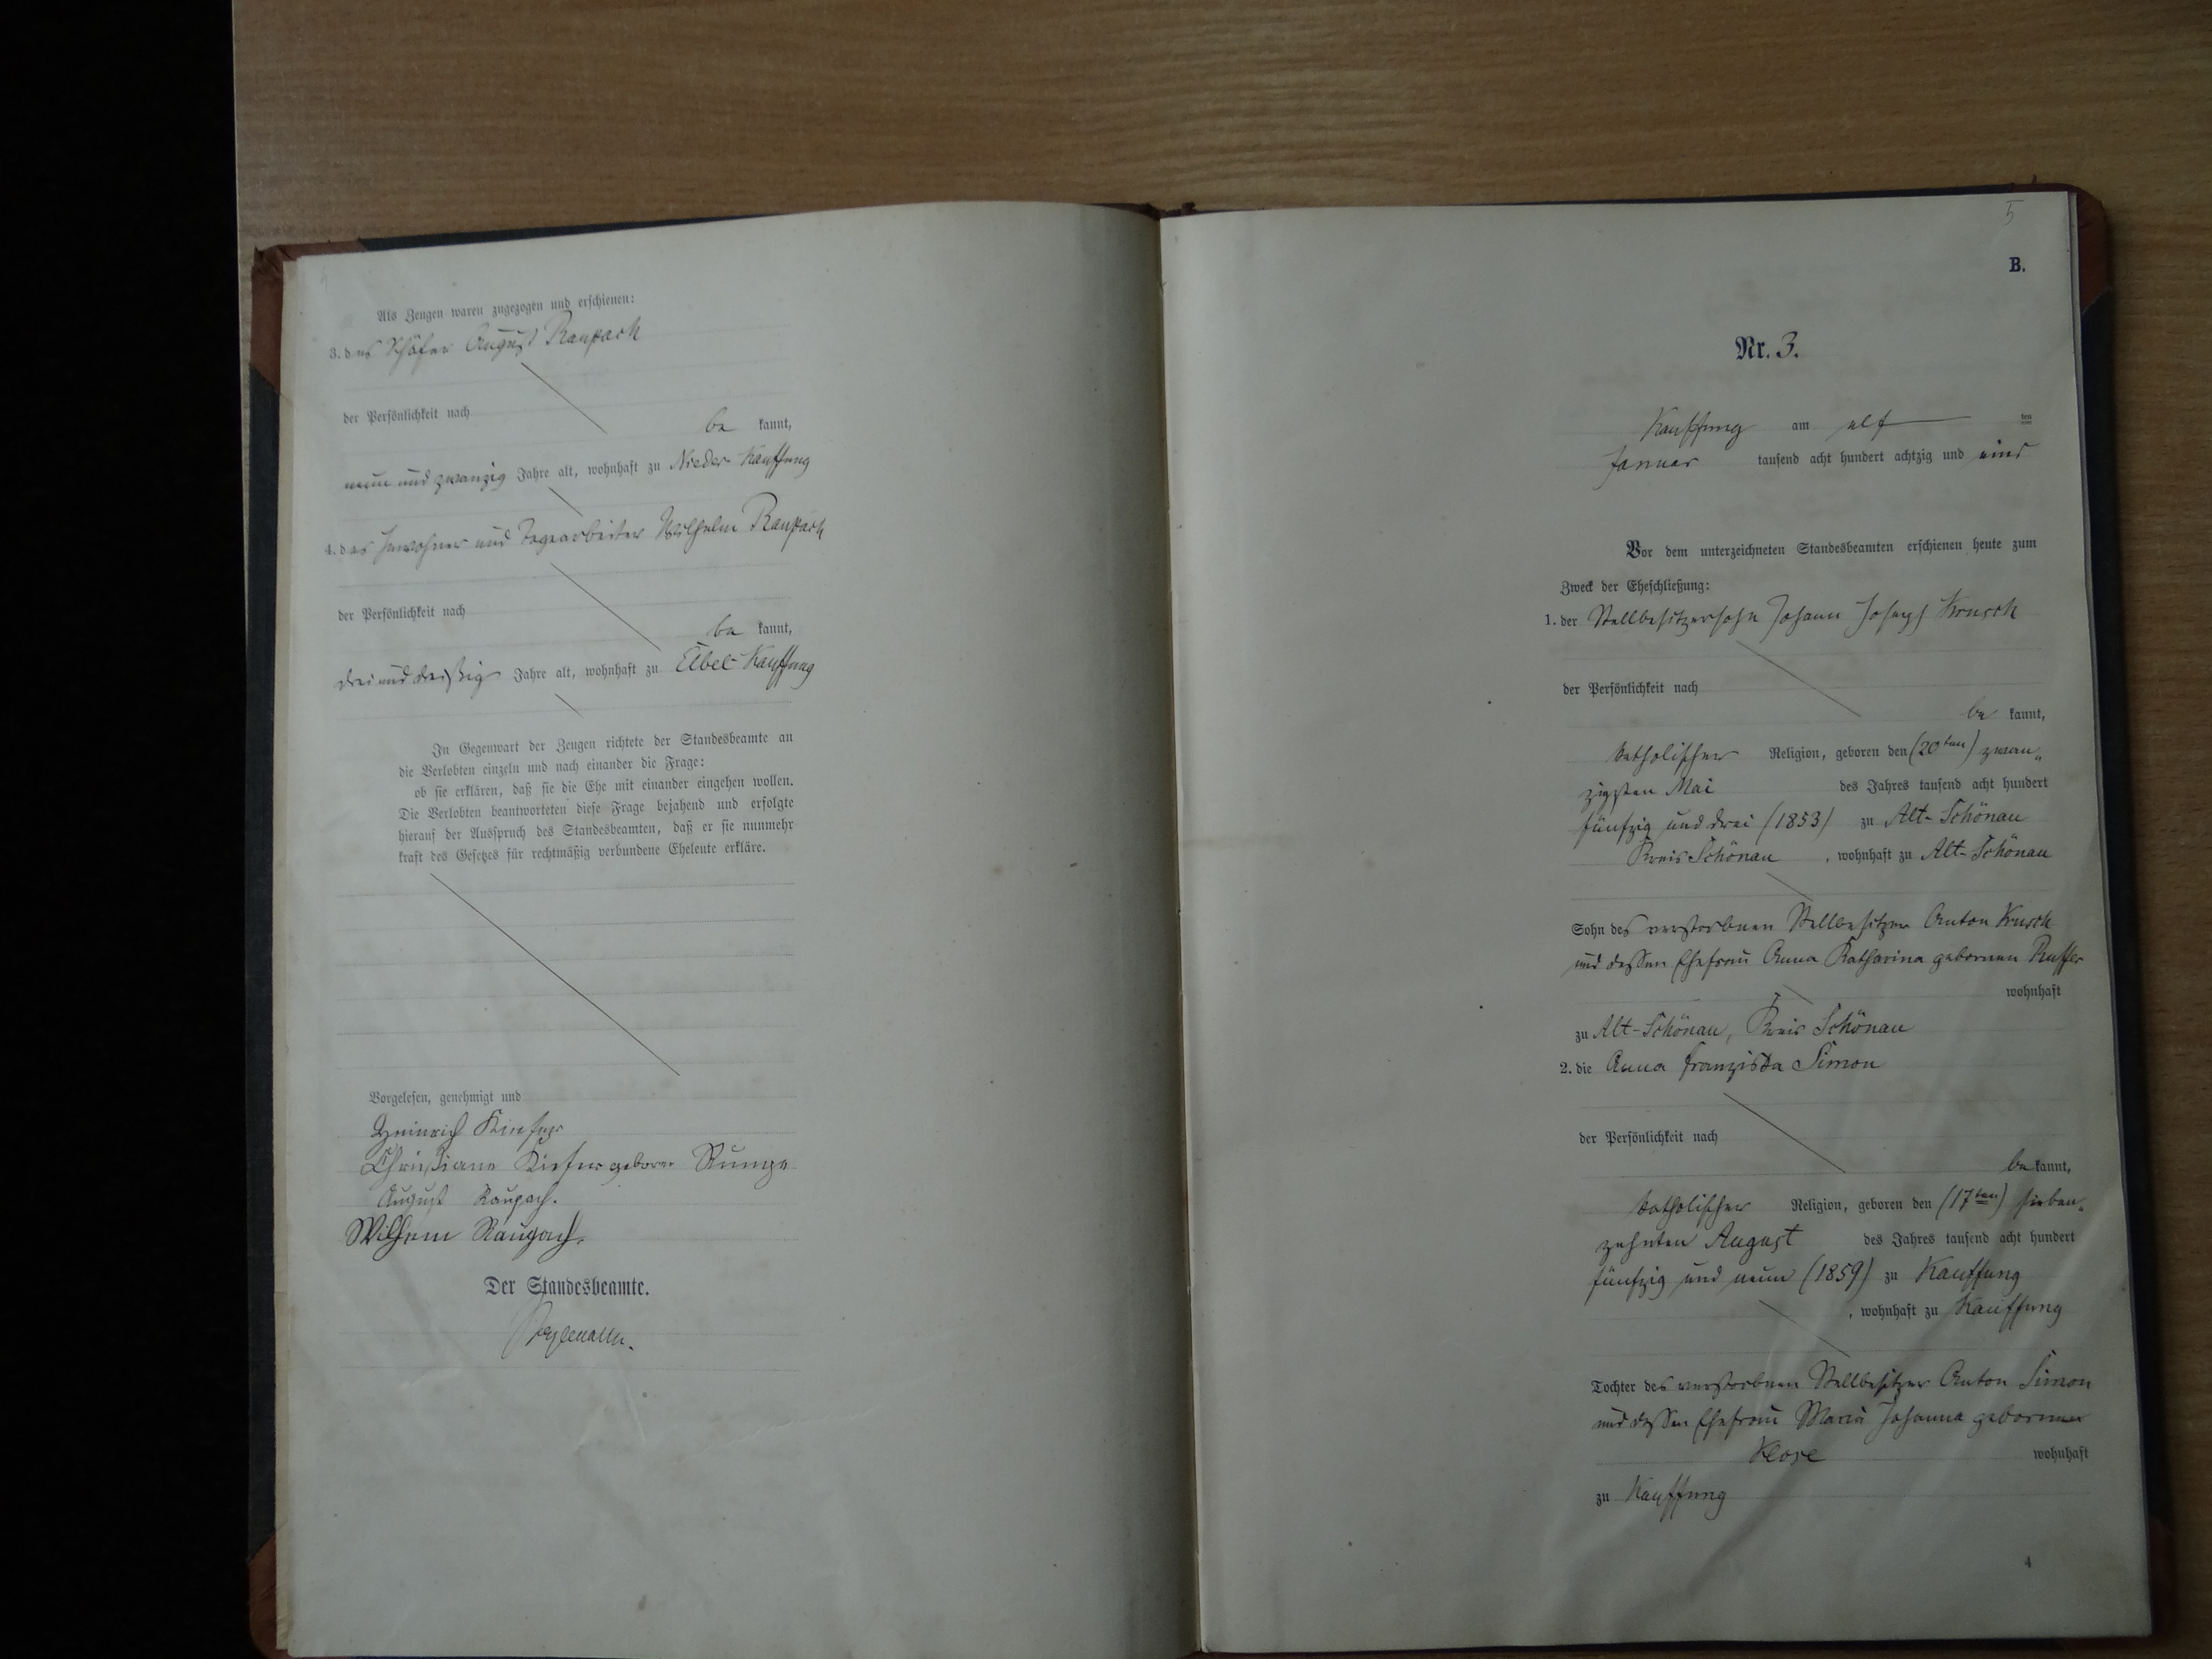 Als Zeugen waren zugezogen und erschienen:
3. der Schäfer August Raupach
der Persönlichkeit nach
be kannt,
neun und zwanzig Jahre alt, wohnhaft zu Nieder-Kauffung
4. der Inwohner und Tagearbeiter Wilhelm Raupach
der Persönlichkeit nach
be kannt,
drei und dreißig Jahre alt, wohnhaft zu Elbel-Kauffung
In Gegenwart der Zeugen richtete der Standesbeamte an
die Verlobten einzeln und nach einander die Frage:
ob sie erklären, daß sie die Ehe mit einander eingehen wollen.
Die Verlobten beantworteten diese Frage bejahend und erfolgte
hierauf der Ausspruch des Standesbeamten, daß er sie nunmehr
kraft des Gesetzes für rechtmäßig verbundene Eheleute erkläre.
Vorgelesen, genehmigt und
Heinrich Kiefer
Christiane Kiefer geborne Runge
August Raupach.
Wilhelm Raupach.
Der Standesbeamte.
5
B.
Nr. 3.
Kauffung am elf ten
Januar tausend acht hundert achtzig und eins
Vor dem unterzeichneten Standesbeamten erschienen heute zum
Zweck der Eheschließung:
1. der Stellbesitzersohn Johann Joseph Krusch
der Persönlichkeit nach
be kannt,
katholischer Religion, geboren den (20ten) zwan„
zigsten Mai des Jahres tausend acht hundert
fünfzig und drei (1853) zu Alt-Schönau
Kreis Schönau, wohnhaft zu Alt-Schönau
Sohn des verstorbnen Stellbesitzer Anton Krusch
und dessen Ehefrau Anna Katharina gebornen Ruffer
wohnhaft
zu Alt-Schönau, Kreis Schönau
2. die Anna Franziska Simon
der Persönlichkeit nach
be kannt,
katholischer Religion, geboren den (17ten) sieben„
zehnten August des Jahres tausend acht hundert
fünfzig und neun (1859) zu Kauffung
, wohnhaft zu Kauffung
Tochter des verstorbnen Stellbesitzer Anton Simon
und dessen Ehefrau Maria Johanna gebornen
Klose wohnhaft
zu Kauffung
4